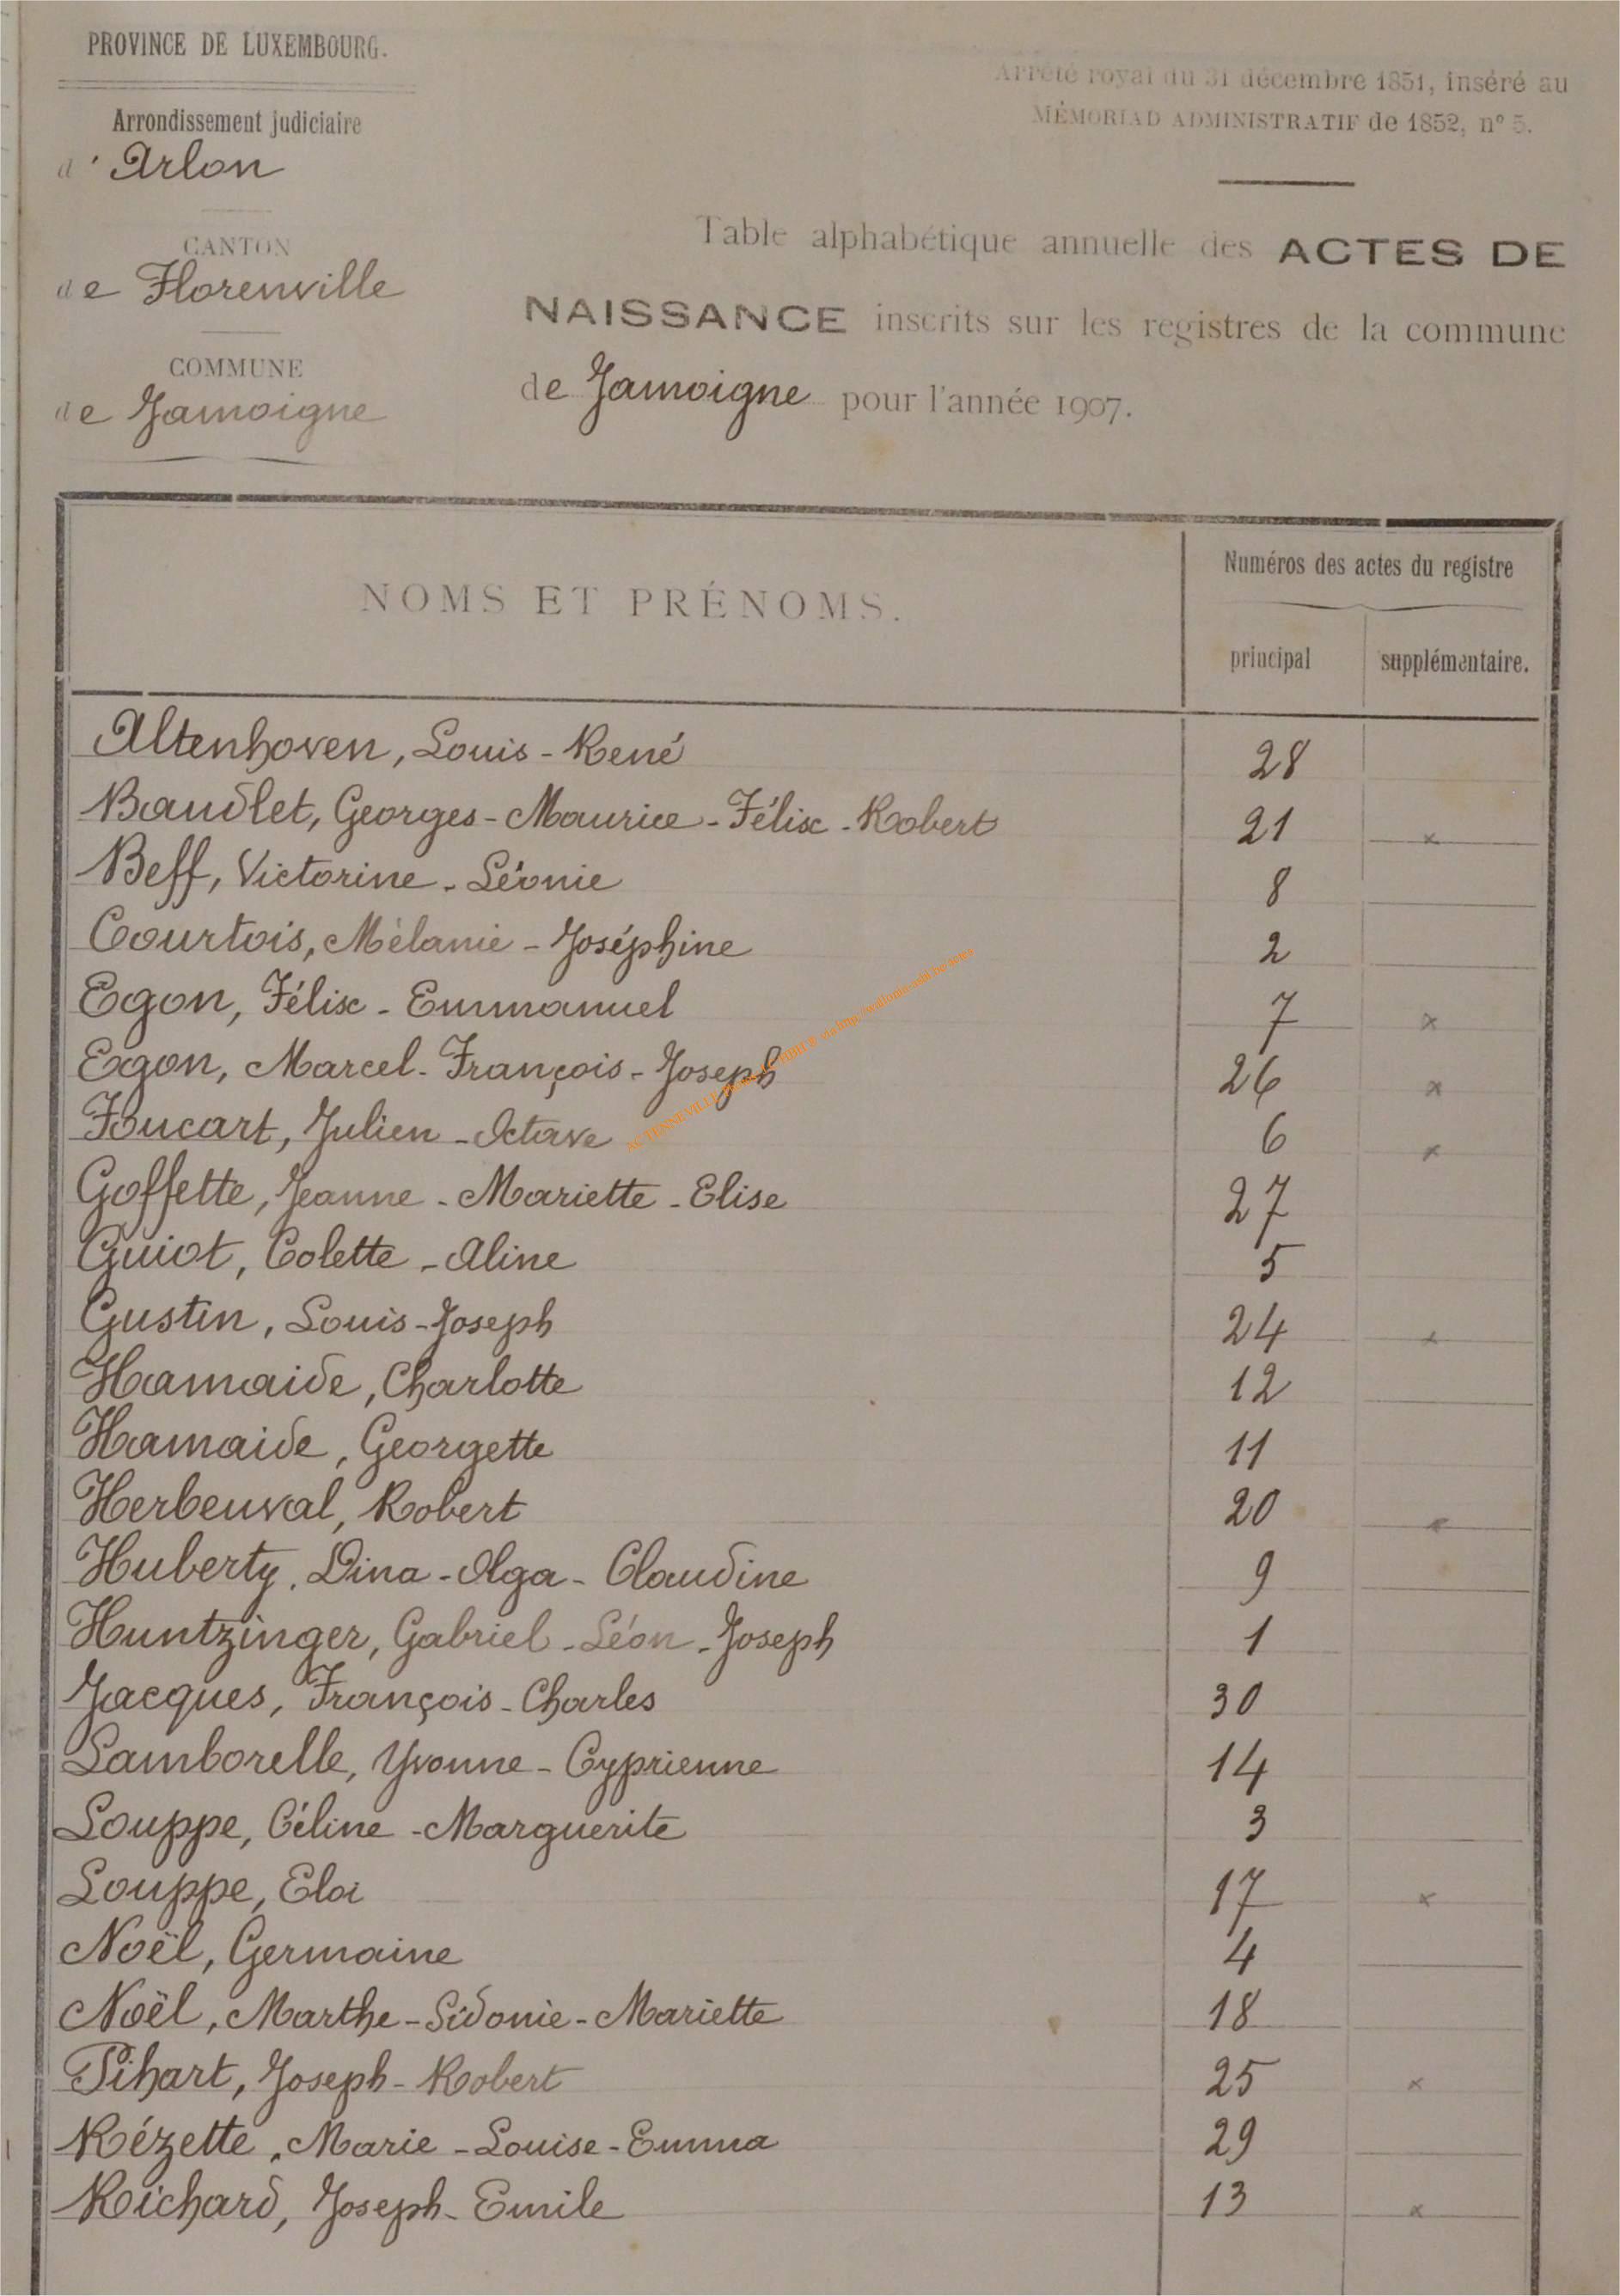 PROVINCE DE LUXEMBOURG.
Arrondissement judiciaire
d'Arlon
CANTON
de Florenville
COMMUNE
de Jamoigne
Arrêté royal du 31 décembre 1851, inséré au
MÉMORIAD ADMINISTRATIF de 1852, n° 5.
Table alphabétique annuelle des ACTES DE
NAISSANCE inscrits sur les registres de la commune
de Jamoigne pour l'année 1907.
NOMS ET PRÉNOMS.
Numéros des actes du registre
principal supplémentaire.
Altenhoven, Louis-René 28
Baudlet, Georges-Maurice-Félix-Robert 21 x
Beff, Victorine-Léonie 8
Courtois, Mélanie-Joséphine 2
Egon, Félix-Emmanuel 7 x
Egon, Marcel-François-Joseph 26 x
Foucart, Julien-Octave 6 x
Goffette, Jeanne-Mariette-Elise 27
Guiot, Colette-Aline 5
Gustin, Louis-Joseph 24 x
Hamaide, Charlotte 12
Hamaide, Georgette 11
Herbeuval, Robert 20 x
Huberty, Dina-Olga-Claudine 9
Huntzinger, Gabriel-Léon-Joseph 1
Jacques, François-Charles 30
Lamborelle, Yvonne-Cyprienne 14
Louppe, Céline-Marguerite 3
Louppe, Eloi 17 x
Noël, Germaine 4
Noël, Marthe-Sidonie-Mariette 18
Pihart, Joseph-Robert 25 x
Rézette, Marie-Louise-Emma 29
Richard, Joseph-Emile 13 x